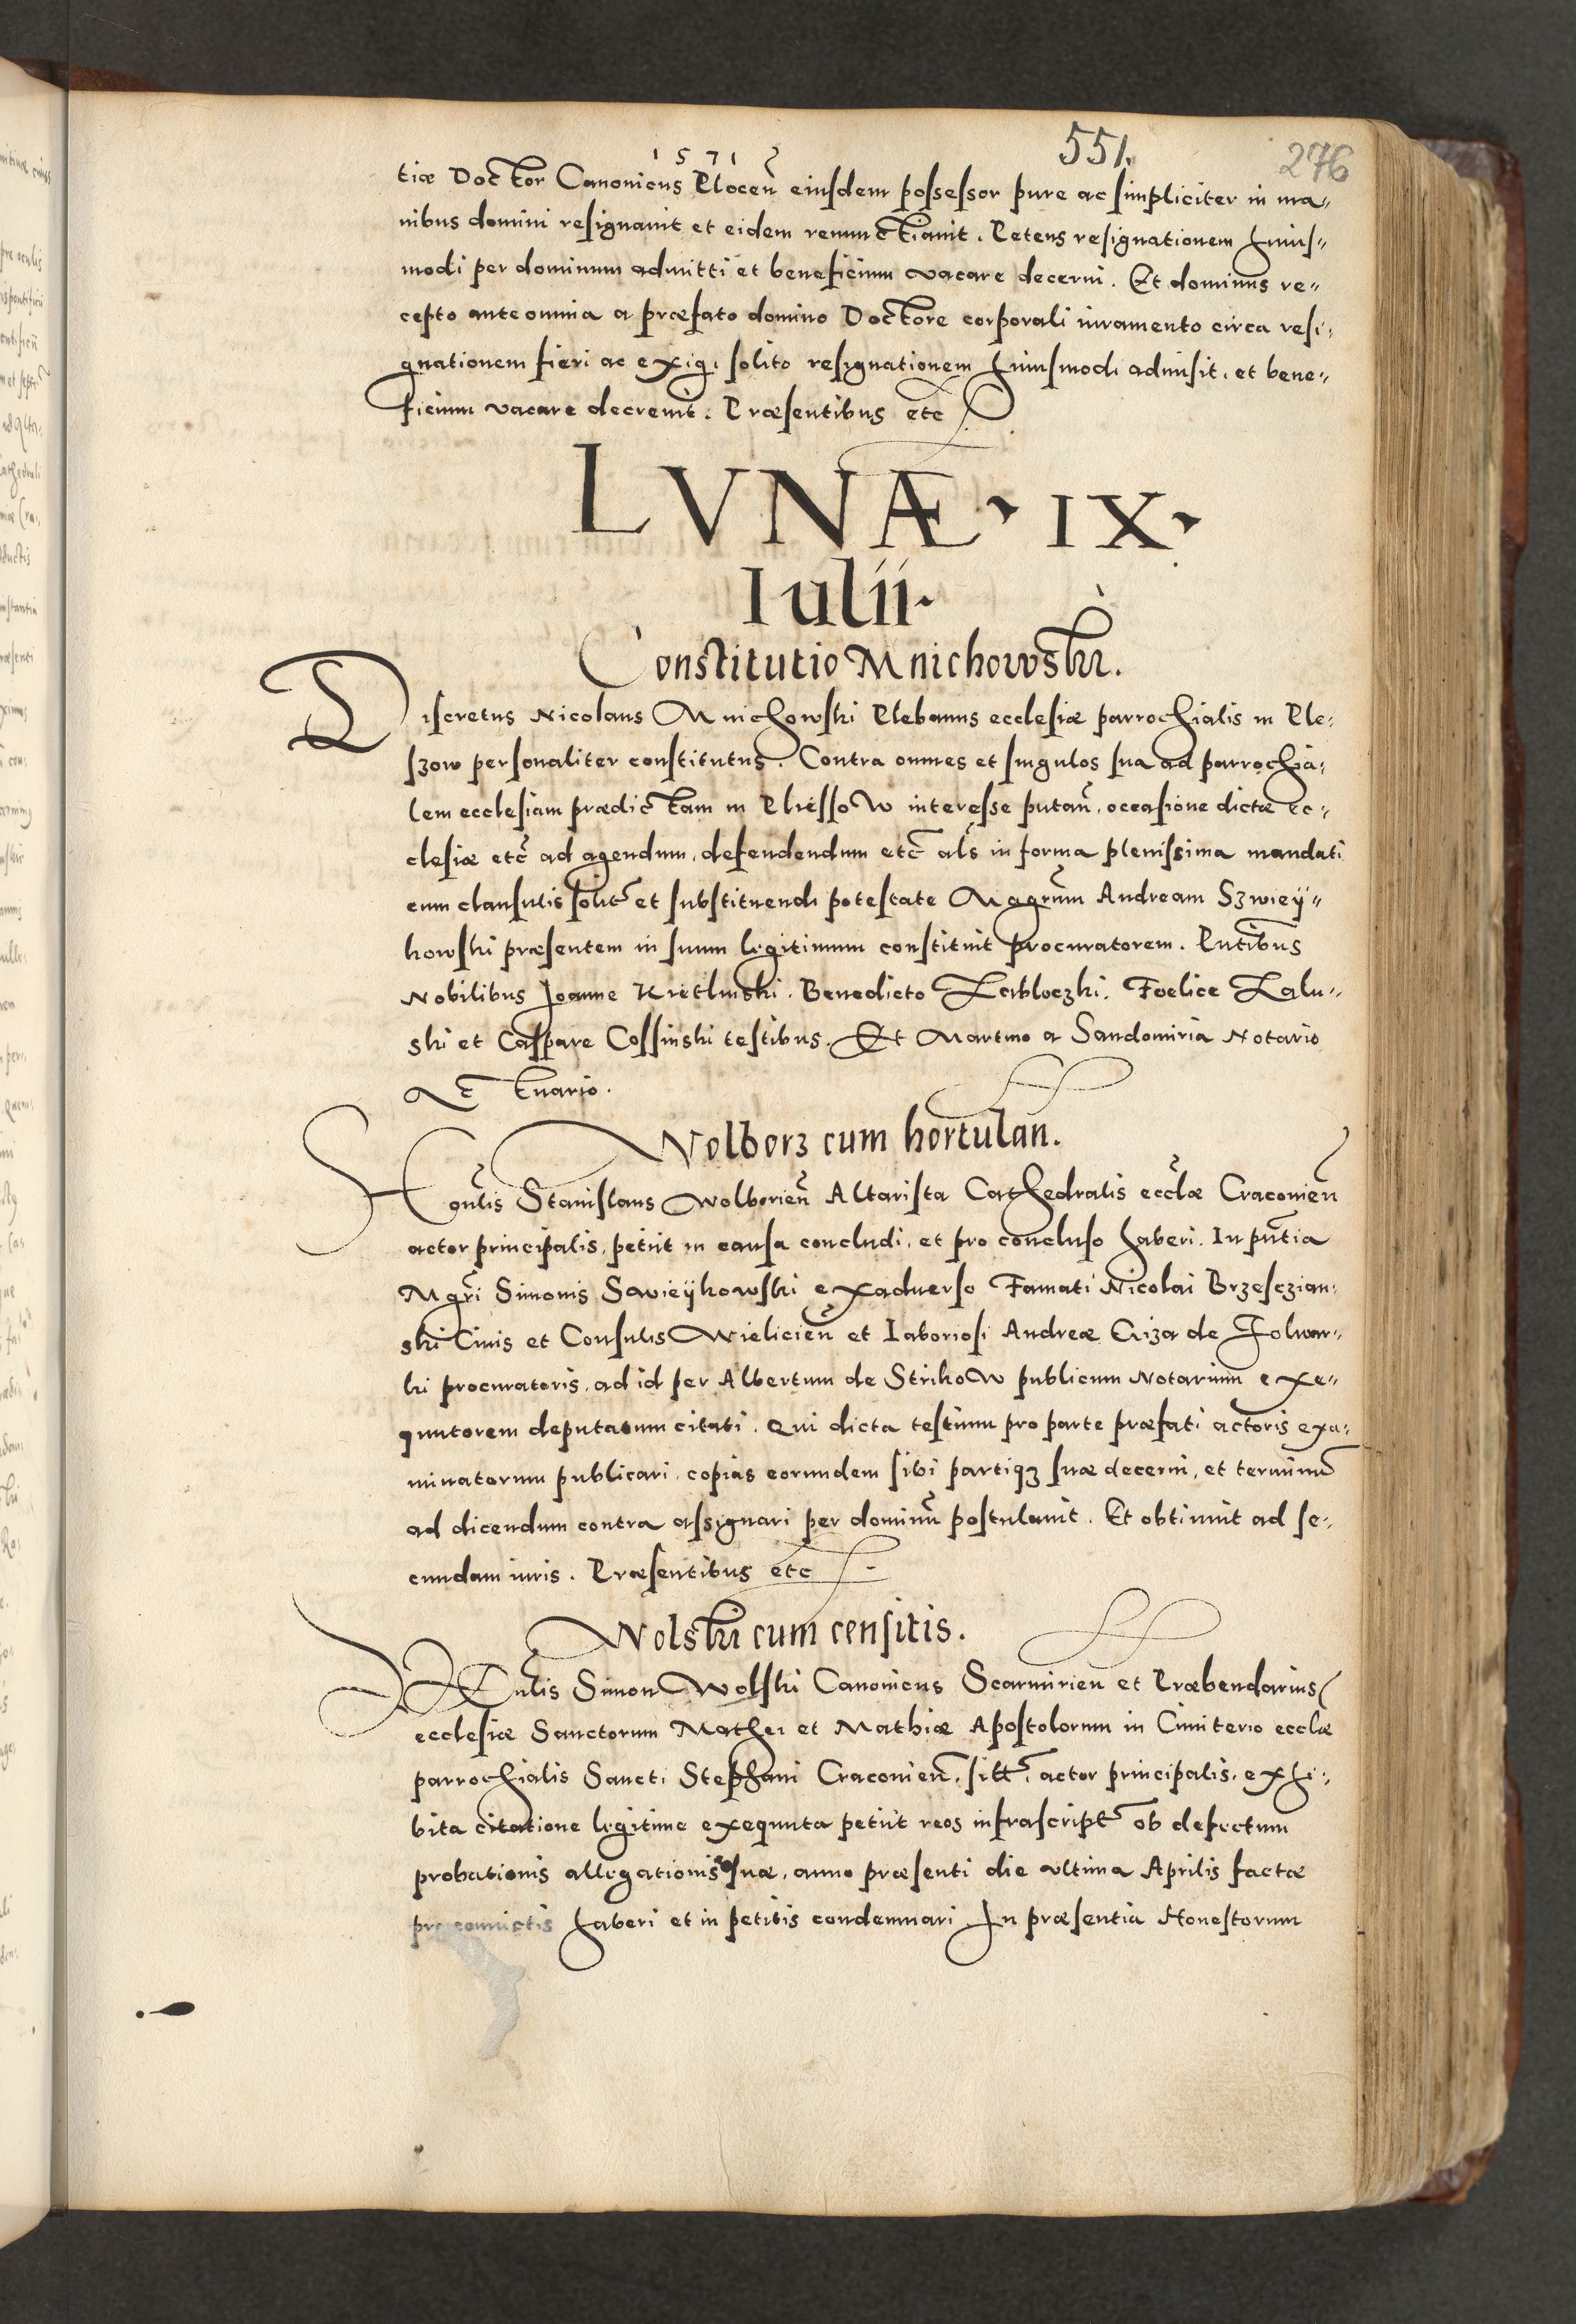 1571
551.
276
tiæ Doctor Canonicus Plocen̄ eiusdem possessor pure ac simpliciter in ma„
nibus domini resignauit et eidem renunctiauit. Petens resignationem huius„
modi per dominum admitti et beneficium vacare decerni. Et dominus re„
cepto ante omnia a præfato domino Doctore corporali iuramento circa resi„
gnationem fieri ac exigi solito resignationem huiusmodi admisit, et bene„
ficium vacare decreuit. Præsentibus etc
LVNÆ · IX ·
Iulii.
Constitutio Mnichowski.
Discretus Nicolaus Mnichowski Plebanus ecclesiæ parrochialis in Ple„
szow personaliter constitutus. Contra omnes et singulos sua ad parrochia„
lem ecclesiam prædictam in Pliessow interesse putan̄, occasione dictæ ec„
clesiæ etc̄ ad agendum, defendendum etc̄ als̄ in forma plenissima mandati
cum clausulis solit̄ et substituendi potestate Magr̄um Andream Szwiey„
kowski præsentem in suum legitimum constituit procuratorem. Pn̄tibus
Nobilibus Joanne Kietlinski. Benedicto Zabloczki. Foelice Zalu„
ski et Caspare Cossinski testibus. Et Martino a Sandomiria Notario
Actuario.
Wolborz cum hortulan.
Hon̄lis Stanislaus Wolborien̄ Altarista Cathedralis eccl̄æ Craconien̄
actor principalis, petiit in causa concludi, et pro concluso haberi. In pn̄tia
Mgr̄i Simonis Szwieykowski exaduerso Famati Nicolai Brzesczian„
ski Ciuis et Consulis Wielicien̄ et Laboriosi Andreæ Criza de Folwar„
ki procuratoris, ad id per Albertum de Strikow publicum Notarium exe„
quutorem deputatum citati. Qui dicta testium pro parte præfati actoris exa„
minatorum publicari, copias eorumdem sibi partiq3 suæ decerni, et terminū
ad dicendum contra assignari per dominū postulauit. Et obtinuit ad se„
cundam iuris. Præsentibus etc
Wolski cum censitis.
Ven̄lis Simon Wolski Canonicus Scarmirien et Præbendarius
ecclesiæ Sanctorum Mathei et Mathiæ Apostolorum in Cimiterio ecclæ
parrochialis Sancti Stephani Craconien̄, sitt̄, actor principalis, exhi„
bita citatione legitime exequuta petiit reos infrascript̄ ob defectum
probationis allegationis suæ, anno præsenti die vltima Aprilis factæ
pro conuictis haberi et in petitis condemnari In præsentia Honestorum